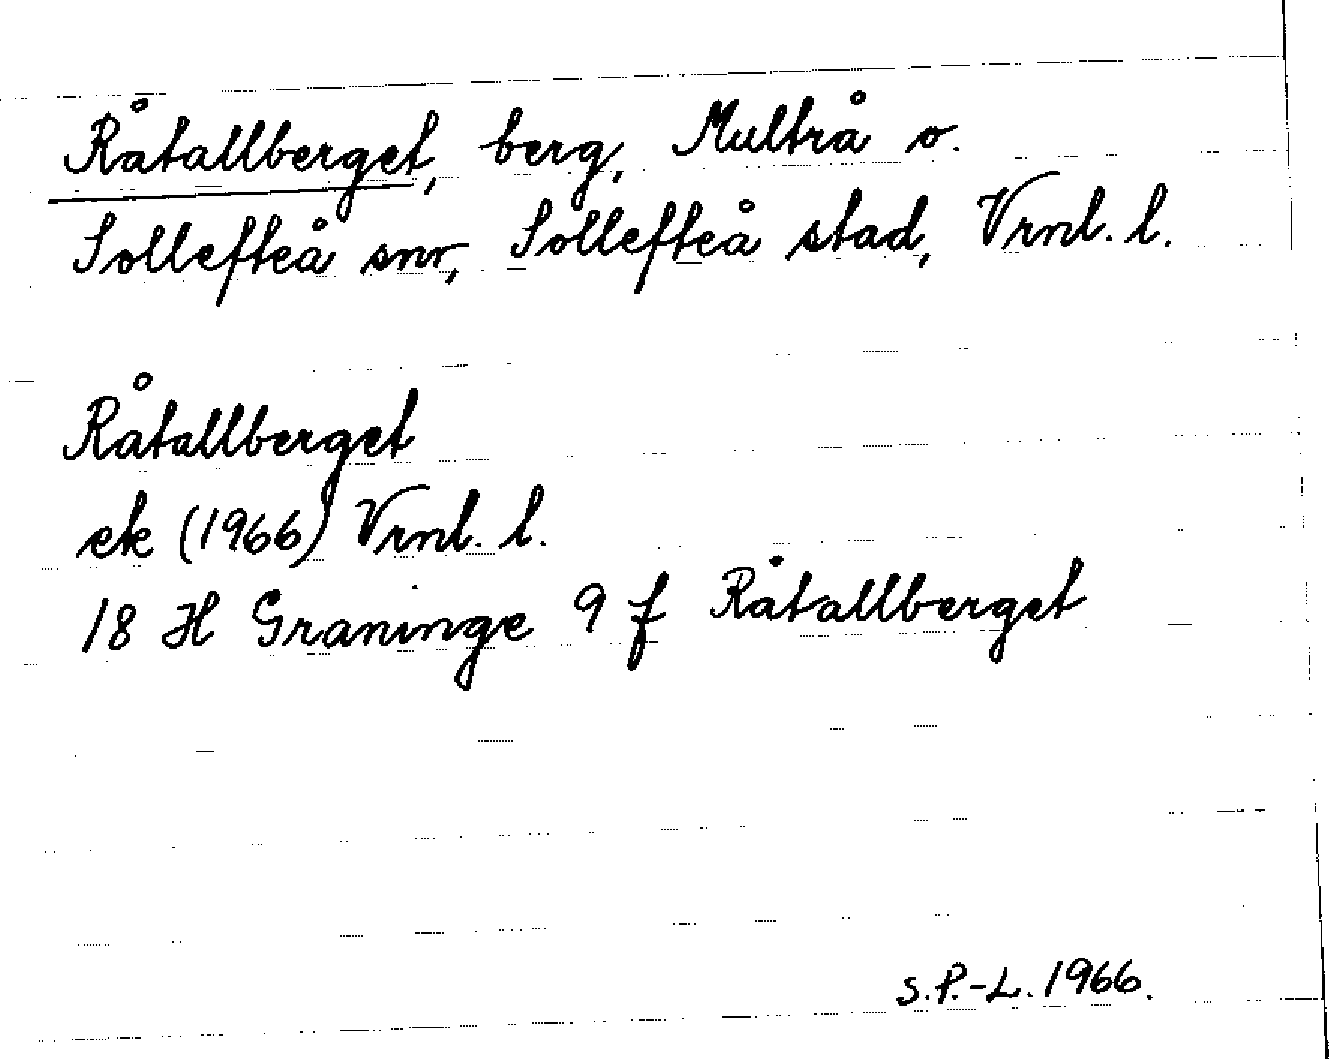 Råtallberget, berg, Multrå o.
Sollefteå snr, Sollefteå stad, Vrnl. l.
Råtallberget
ek (1966) Vrnl. l.
18 H Graninge 9 f Råtallberget
S.P.-L. 1966.